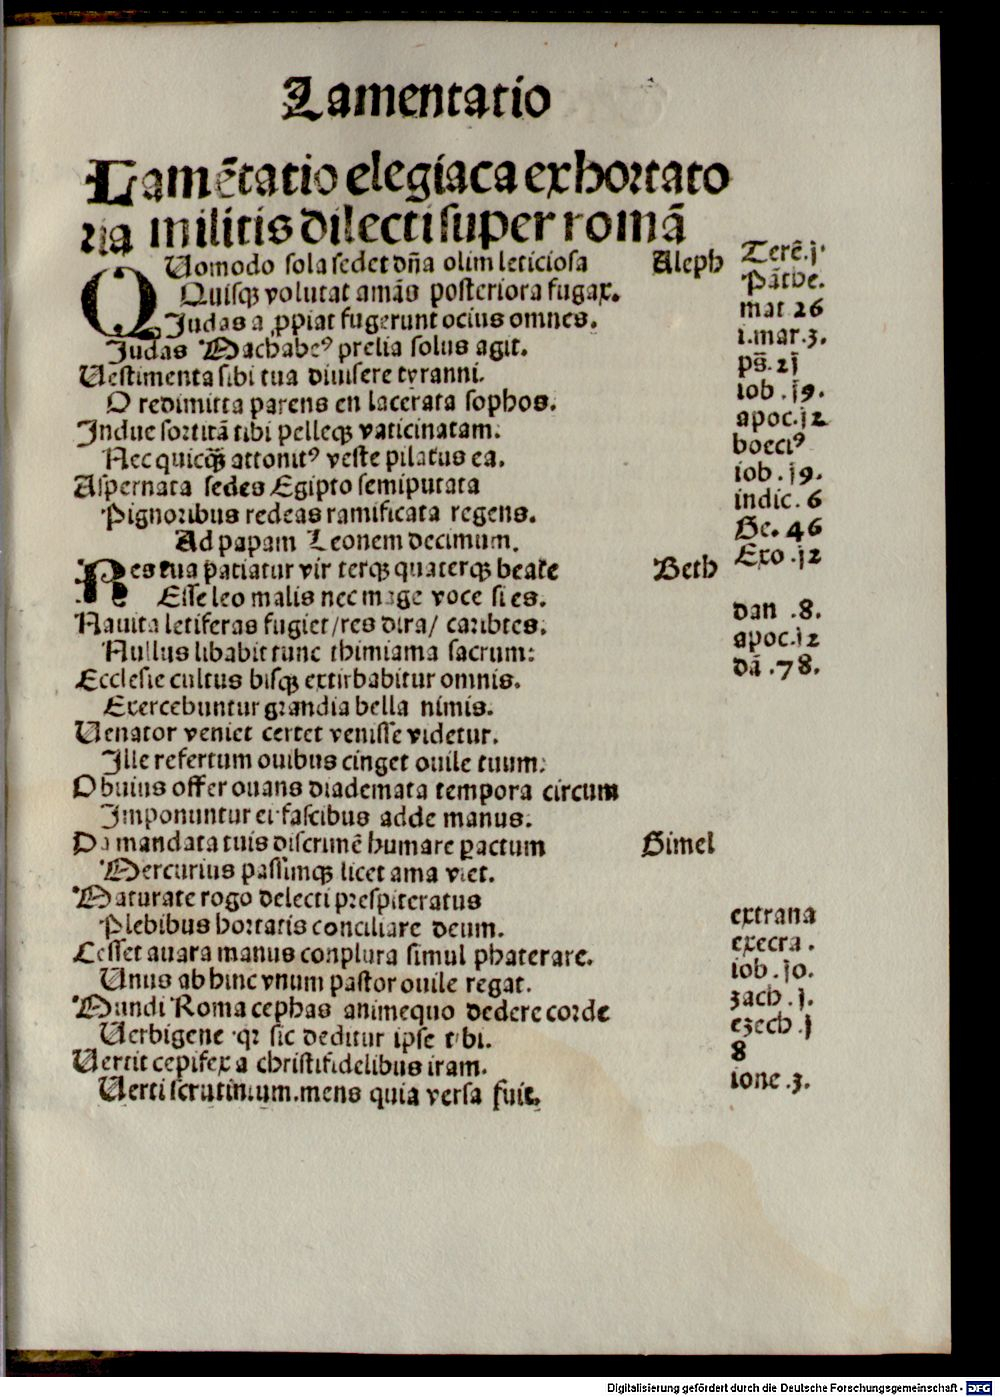 Lamentatio
Lamẽtatio elegiaca exhortato
ria militis dilecti super romã
QUomodo sola sedet dña olim leticiosa Aleph Terẽ.j.
Quisqꝫ volutat amãs posteriora fugax. Pãthe.
Judas a ꝓpiat fugerunt ocius omnes. mat 26
Judas Machabeꝰ prelia solus agit. i.mar.3.
Uestimenta sibi tua diuisere tyranni. ps̃.2j
O redimitta parens en lacerata sophos. iob .j9.
Indue sortitã tibi pelleqꝫ vaticinatam. apoc.j2
Nec quicq̃ꝫ attonitꝰ veste pilatus ea. boeciꝰ
Aspernata sedes Egipto semiputata iob .j9.
Pignoribus redeas ramificata regens. indic. 6
Ad papam Leonem decimum. Ge. 46
Exo .j2
Res tua patiatur vir terqꝫ quaterqꝫ beate Beth
Esse leo malis nec mage voce si es.
Nauita letiferas fugiet/res dira/ caribtes. dan .8.
Nullus libabit tunc thimiama sacrum: apoc.i2
Ecclesie cultus bisqꝫ extirbabitur omnis. dã .78.
Exercebuntur grandia bella nimis.
Uenator veniet certet venisse videtur.
Ille refertum ouibus cinget ouile tuum:
Obuius offer ouans diademata tempora circum
Imponuntur ei fascibus adde manus.
Da mandata tuis discrimẽ humare ꝑactum Gimel
Mercurius passimqꝫ licet ama viet.
Maturate rogo delecti prespiteratus
Plebibus hortatis conciliare deum. extraua
Cesset auara manus conplura simul phaterare. execra .
Unus ab hinc vnum pastor ouile regat. iob .jo.
Mundi Roma cephas animequo dedere corde zach .j.
Uerbigene qꝛ sic deditur ipse tibi. ezech .j
8
Uertit cepifex a christifidelibus iram.
Uerti scrutinium.mens quia versa fuit. ione .3.
Digitalisierung gefördert durch die Deutsche Forschungsgemeinschaft - DFG